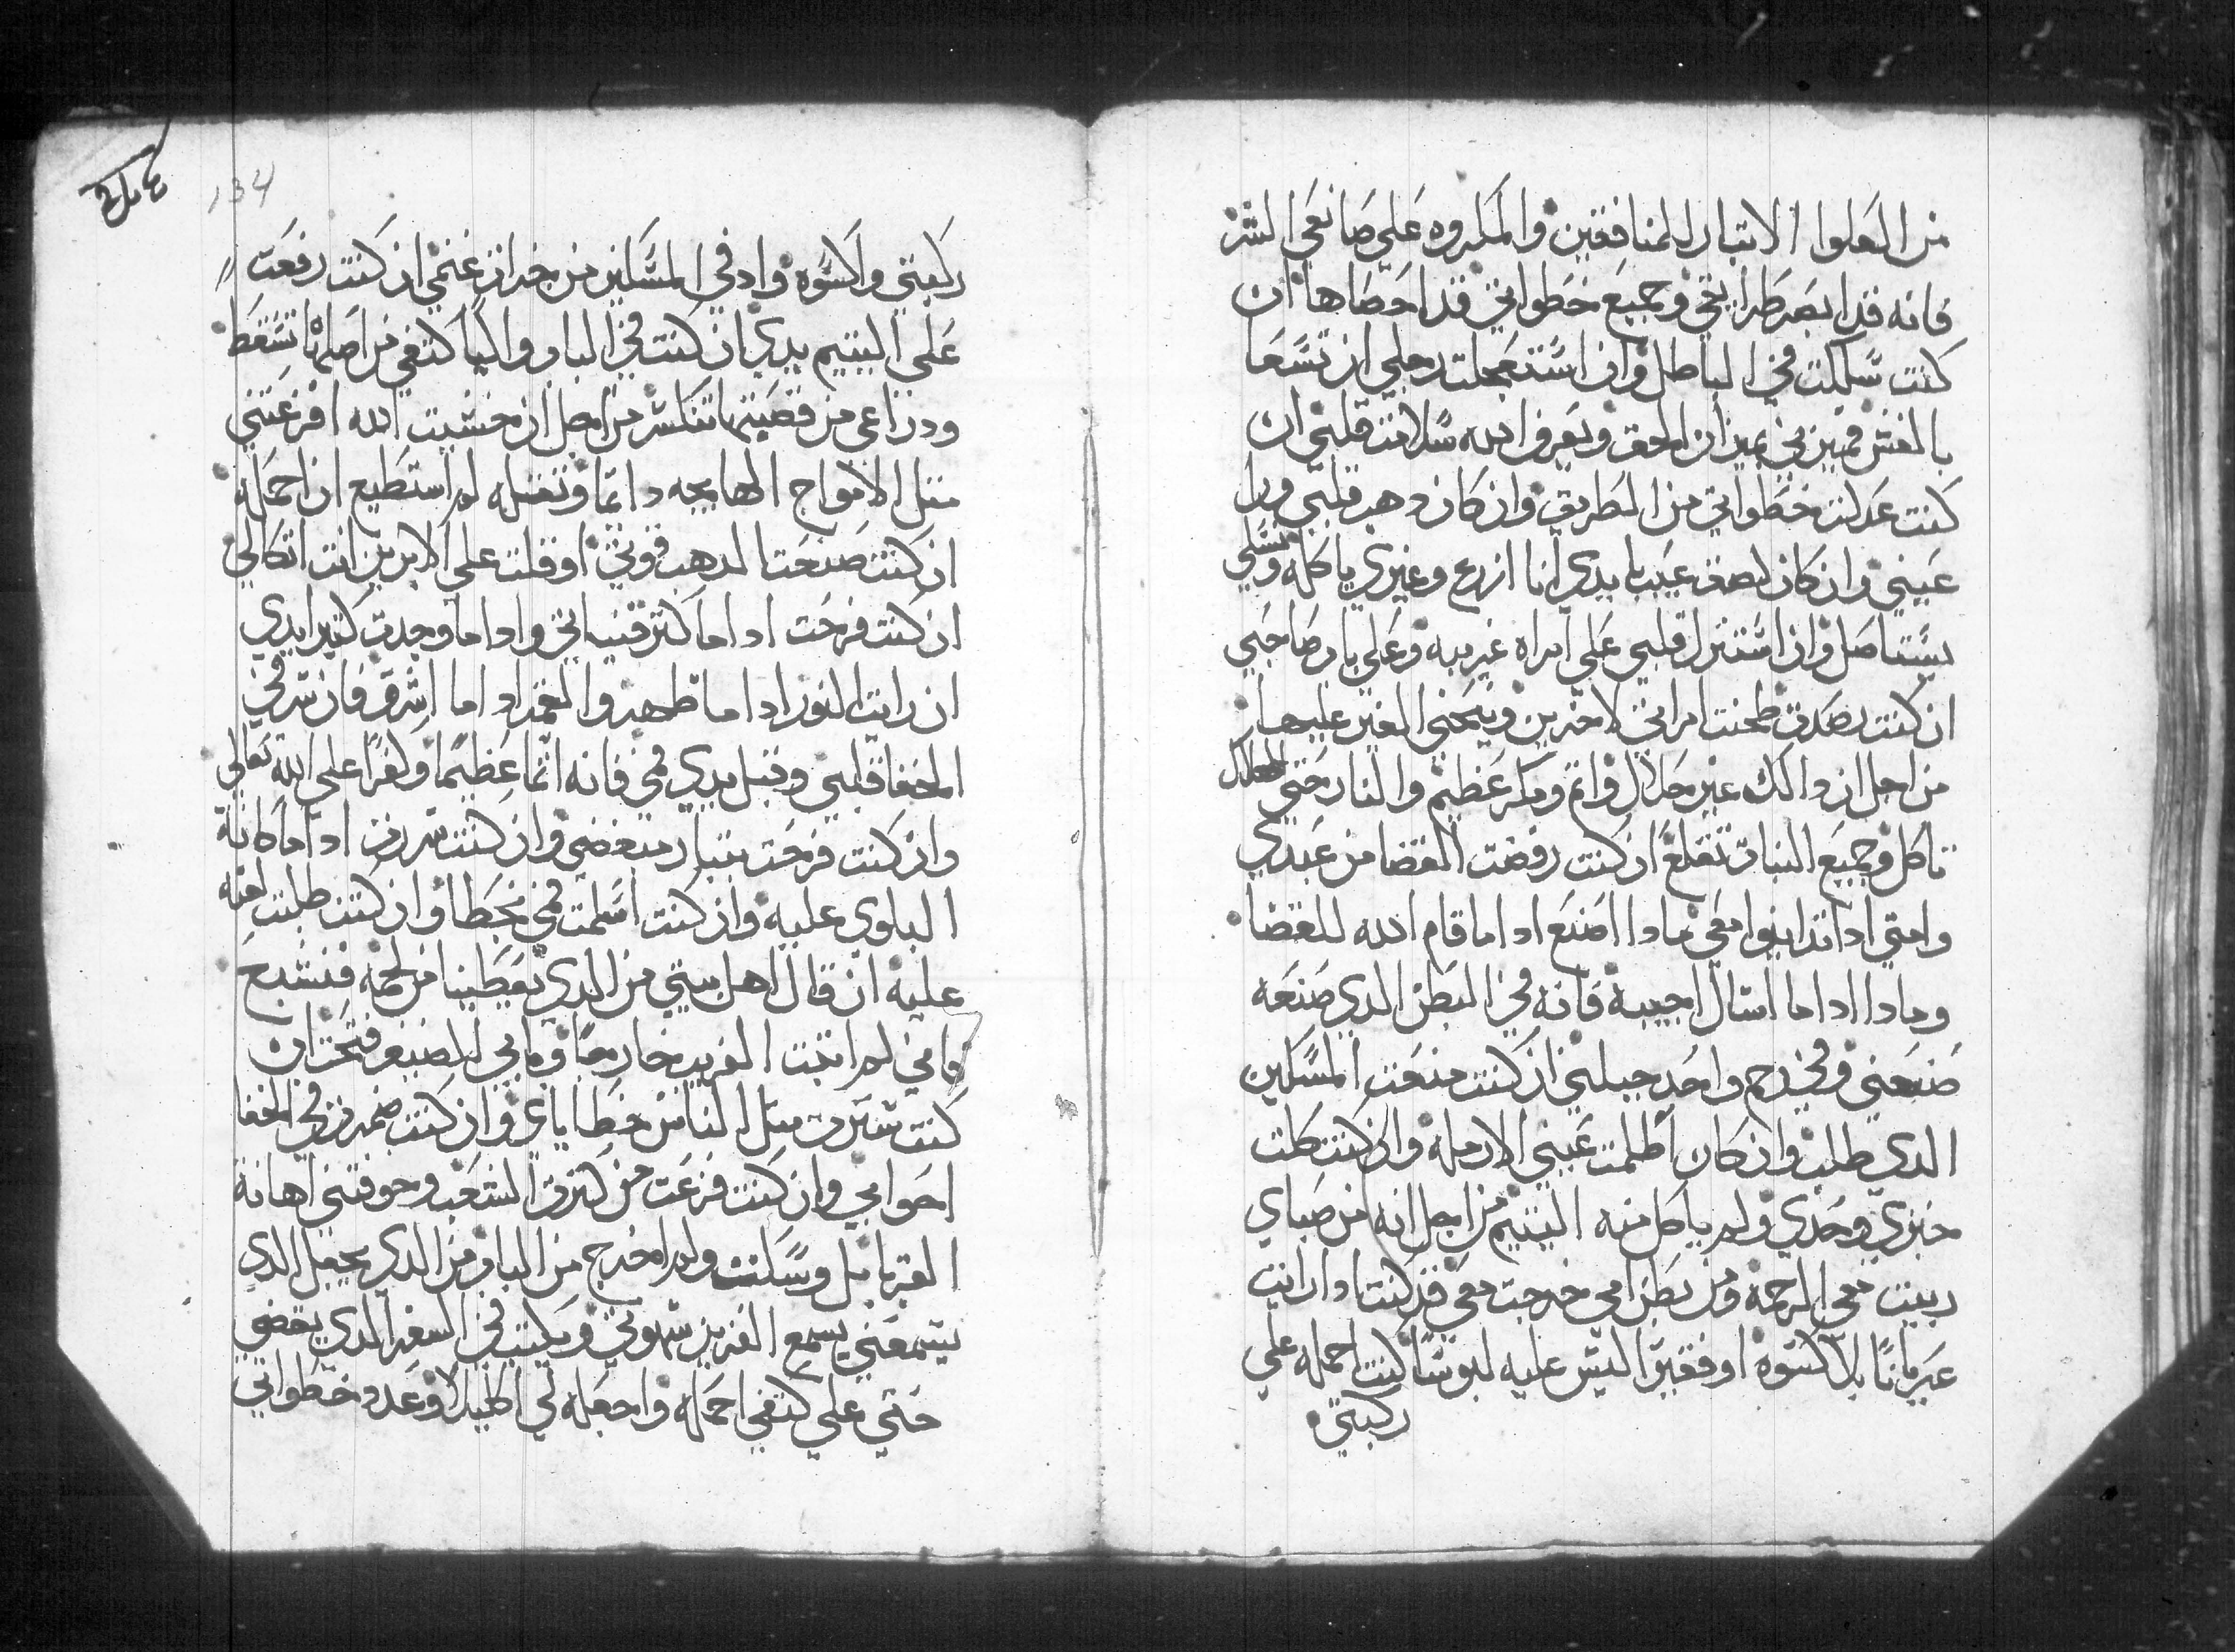 من العلوا الاتبار للمنافقين والمكروه على صانعي الشر
فانه قد ابصر طرايقي وجميع خطواتي قد احصاها ان
كنت سلكت في الباطل وان استعجلت رجلي ان تسعا
بالغش فميزني بميزان الحق ويعرف الله سلامة قلبي ان
كنت عدلت خطواتي من الطريق وان كان دهب قلبي ورا
عيني وان كان لصق عيب بايدي انا ازرع وغيري ياكله ونسلي
يستاصل وان استنزل قلبي على امراه غريبه وعلى باب صاحبي
ان كنت رصدت طحنت امراتي لاخرين وينحني الغير عليها
من اجل ان دالك غير حلال واتم ومكر عظيم والنار حتي الهلاك
تاكل وجميع النبات تقلع ان كنت رفضت القضا من عبدي
وامتي اداتداينوا معي مادا اصنع اداما قام الله للقضا
ومادا اداما اسال اجيبه فانه في البطن الدي صنعه
صنعني وفي رحم واحد جبلني ان كنت منعت المسكين
الدي طلب وان كان اظلمت عيني الارمله وان كنت اكلت
خبزي وحدي ولم ياكل منه اليتيم من اجل انه من صباي
ربيت معي الرحمه ومن بطن امي خرجت معي فان كنت ادا رايت
عريانًا بلا كسوة او فقيرا ليس عليه لبوسًا كنت احمله علي
ركبتي
134
ركبتي واكسوه وادفي المسكين من جزاز غنمي ان كنت رفعت
على اليتيم يدي ان كنت في الباب والياكتفي من اصلها تسقط
ودراعي من قصبتها تنكسر من اجل ان خشيت الله افزعتني
متل الامواج الهايجه دايما وتقله لم استطيع ان احمله
ان كنت صنعت الدهب قوتي او قلت على الابريز انت اتكالي
ان كنت فرحت اداما كتر قنياني واداما وجدت كتير ايدي
ان رايت النور اداما ظهر والقمر اداما اشرق فان سر في
الخفا قلبي وقبل يدي في فانه اتما عظيمًا وكفرًا على الله تعالى
وان كنت فرحت بتبار مبغضي وان كنت سررت اداماكانة
البلوي عليه وان كنت اسلمت في بخطا وان كنت طلبت لعنه
عليه ان قال اهل بيتي من الدي يعطينا من لحمه فنشبع
فاني لم ابيت الغريب خارجًا وبابي للضيف فتحت ان
كنت سترت متل الناس خطاياي وان كنت ضمرت في الخفا
احوابي وان كنت فزعت من كترة الشعب وخوفتني اهانة
القبايل وسكت ولم اخرج من الباب من الدي يجعل الدي
يسمعني يسمع العزيز شهوتي ويكتب في السفر الدي يقضي
حتي على كتفي احمله واجعله لي اكليلا وعدد خطواتي